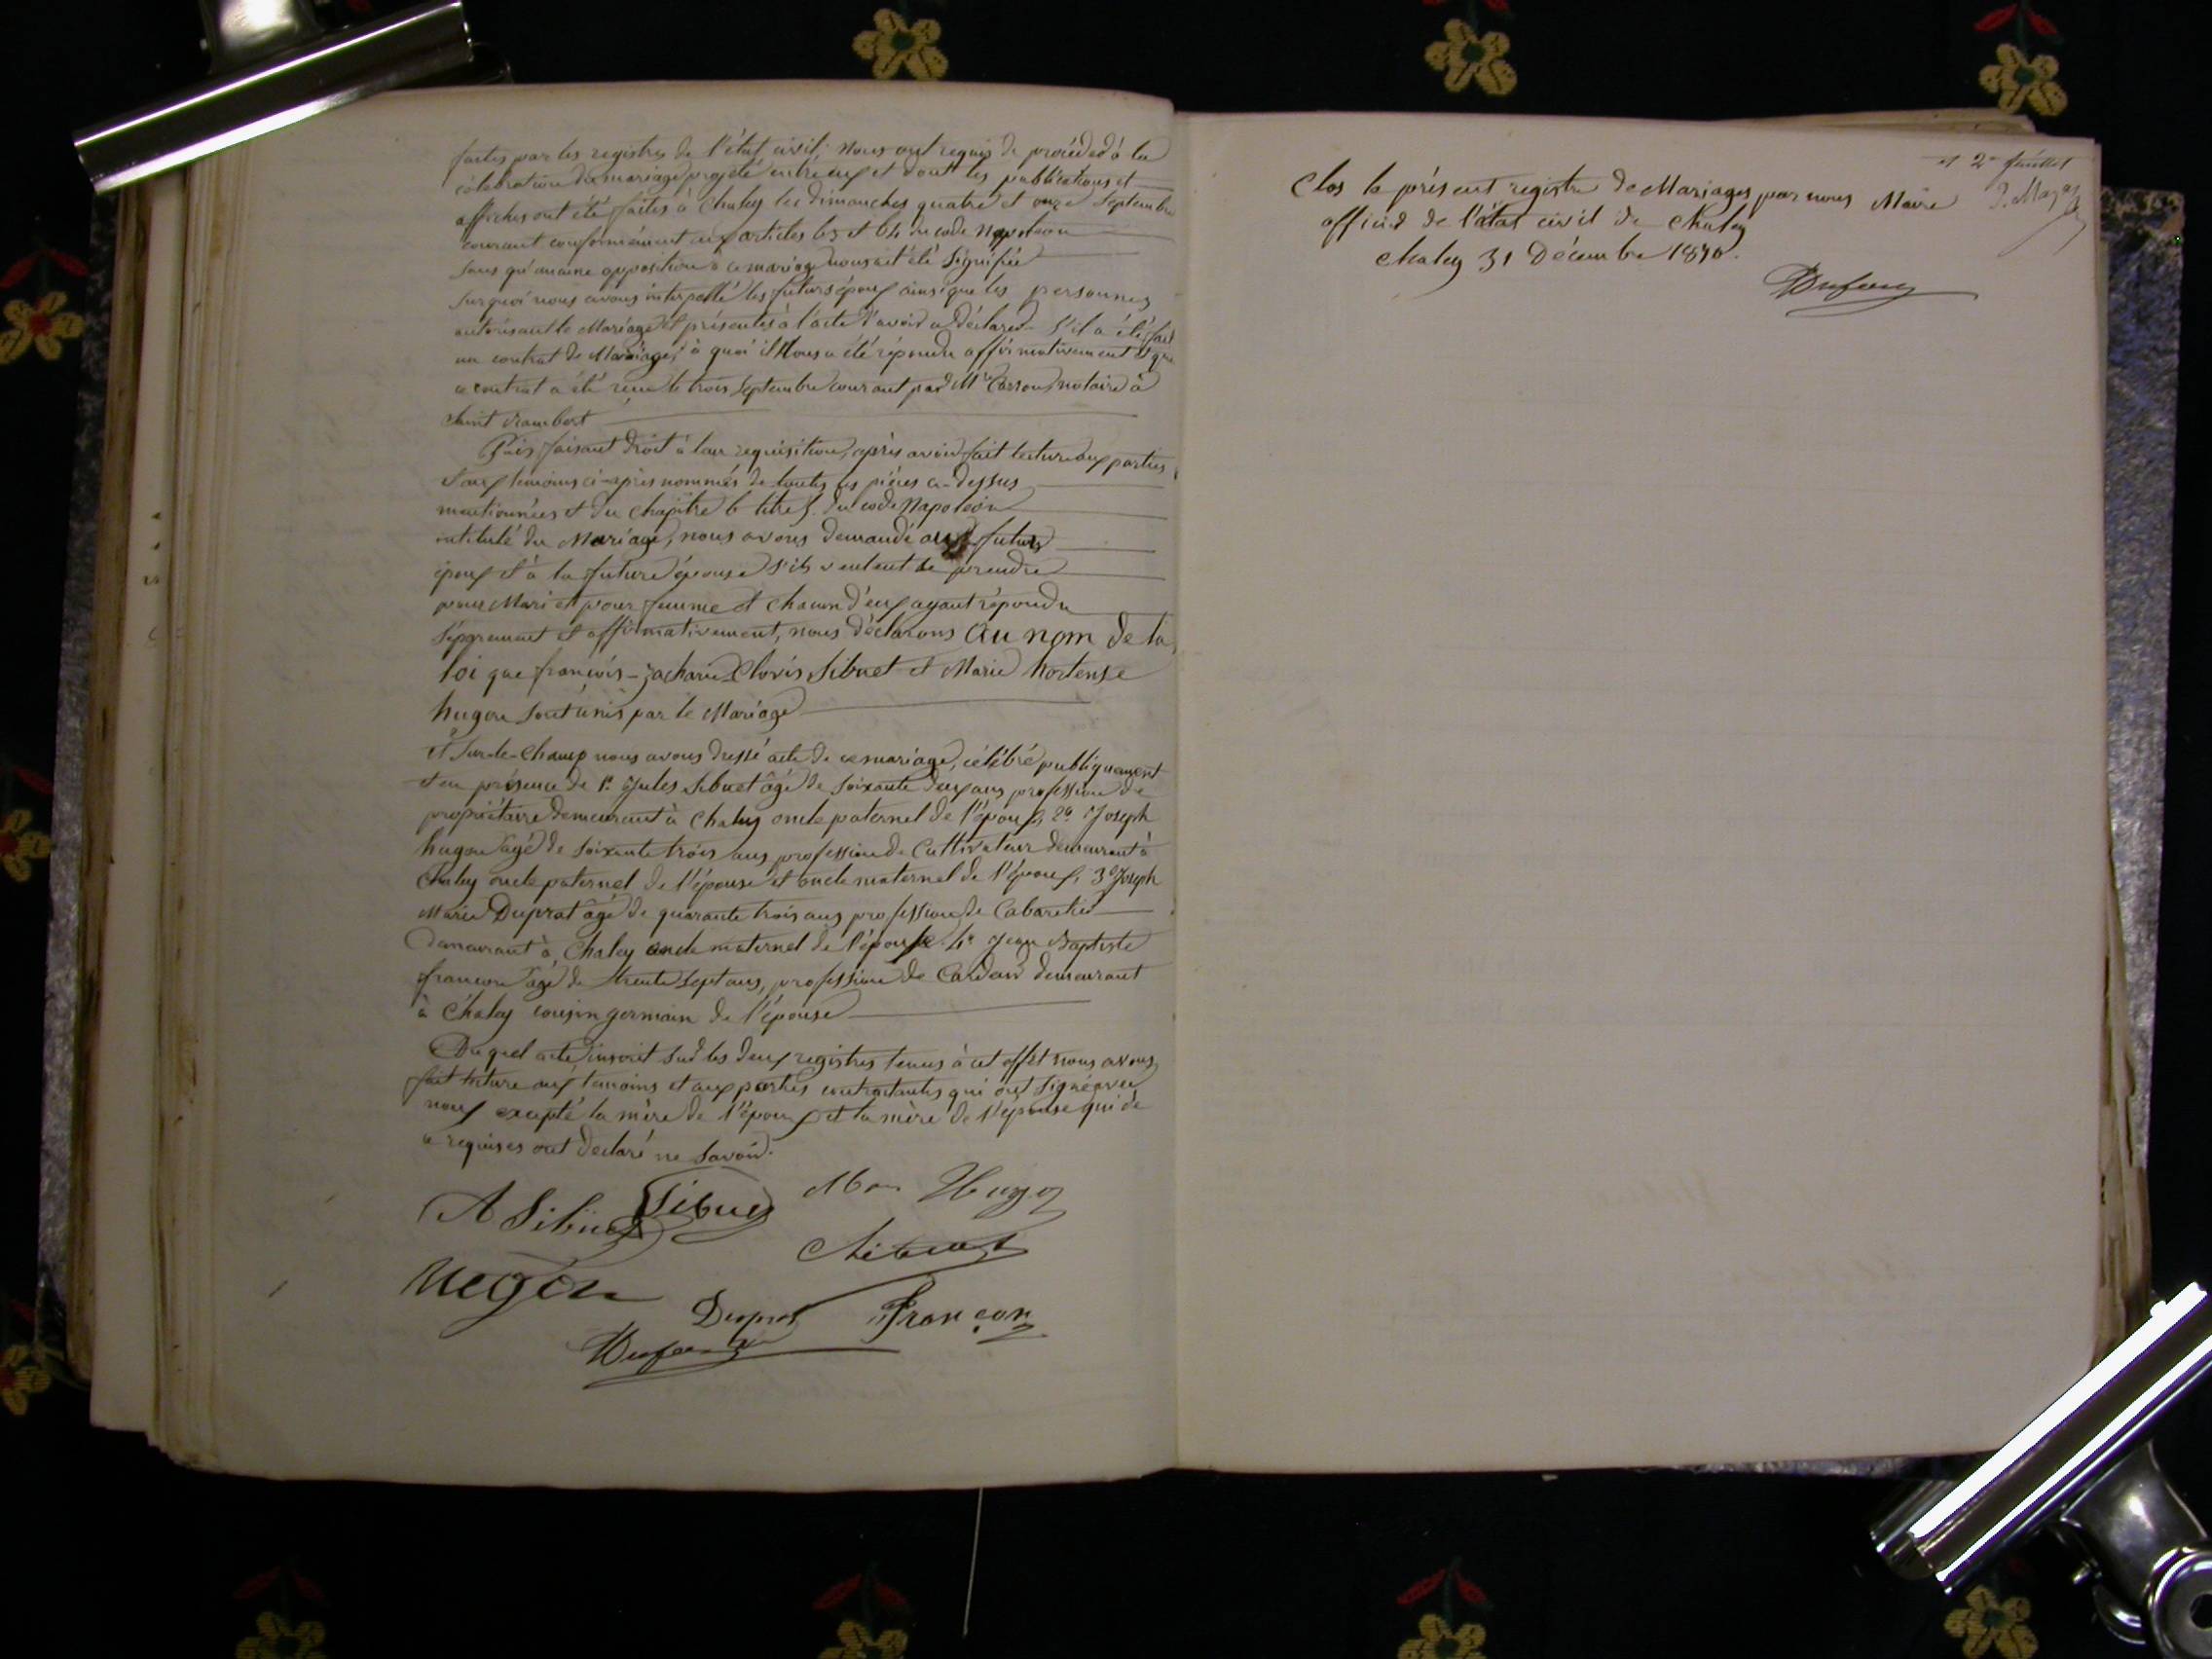 faites par les registres de l'état civil. Nous ont requis de procéder à la
célébration du mariage projeté entre eux et dont les publications et
affiches ont été faites à Chaley les dimanches quatre et onze Septembre
courant conformément aux articles 63 et 64 du code Napoléon
sans qu'aucune opposition à ce mariage nous ait été signifiée
Sur quoi nous avons interpellé les futurs époux ainsi que les personnes
autorisant le Mariage et présentes à l'acte d'avoir à déclarer s'il a été fait
un contrat de Mariage, à quoi il Nous a été répondu affirmativement et que
ce contrat a été reçu le trois Septembre courant par Me notaire à
Saint Rambert
Puis faisant droit à leur requisition, après avoir fait lecture aux parties
et aux témoins ci-après nommés de toutes les pièces ci-dessus
mentionnées et du chapitre 6 titre 5. du code Napoléon
intitulé du Mariage, nous avons demandé au futur
époux et à la future épouse s'ils veulent se prendre
pour Mari et pour femme et chacun d'eux ayant répondu
séparement et affirmativement, nous déclarons au nom de la
loi que françois-zacharie Clovis Sibuet et Marie hortense
hugon sont unis par le Mariage
et Sur-le-Champ nous avons dressé acte de ce mariage, célébré publiquement
et en présence de 1° Jules Sibuet âgé de soixante deux ans profession de
propriétaire demeurant à Chaley oncle paternel de l'époux, 2° Joseph
hugon âgé de soixante trois ans profession de Cultivateur demeurant à
Chaley oncle paternel de l'épouse et oncle maternel de l'époux, 3° Joseph
Marie Duprat âgé de quarante trois ans profession de Cabaretier
demeurant à Chaley oncle maternel de l'épouse. 4° Jean Baptiste
françon âgé de trente sept ans, profession de Cardeur demeurant
à Chaley cousin germain de l'épouse
Du quel acte, inscrit sur les deux registres tenus à cet effet nous avons
fait lecture aux témoins et aux parties contractantes qui ont signé avec
nous excepté la mère de l'époux et la mère de l'épouse qui de
ce requises ont déclaré ne savoir.
A Sibuet Sibuet Hugon
Sibuet
hugon
Duprat Françon
Dufour
et 2e feuillet
Clos le présent registre de Mariages par nous Maire
officier de l'état civil de Chaley
Chaley 31 Décembre 1870.
Dufour